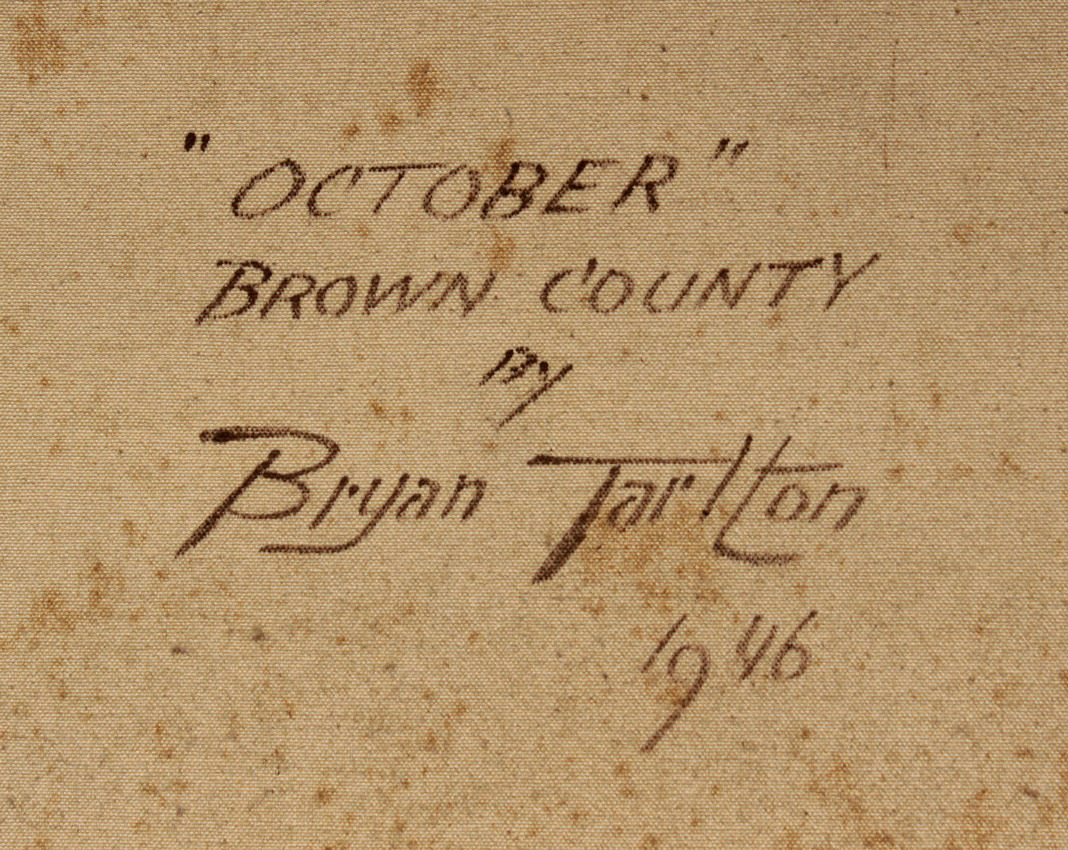 "OCTOBER"
BROWN COUNTY
By
Bryan Tarlton
1946